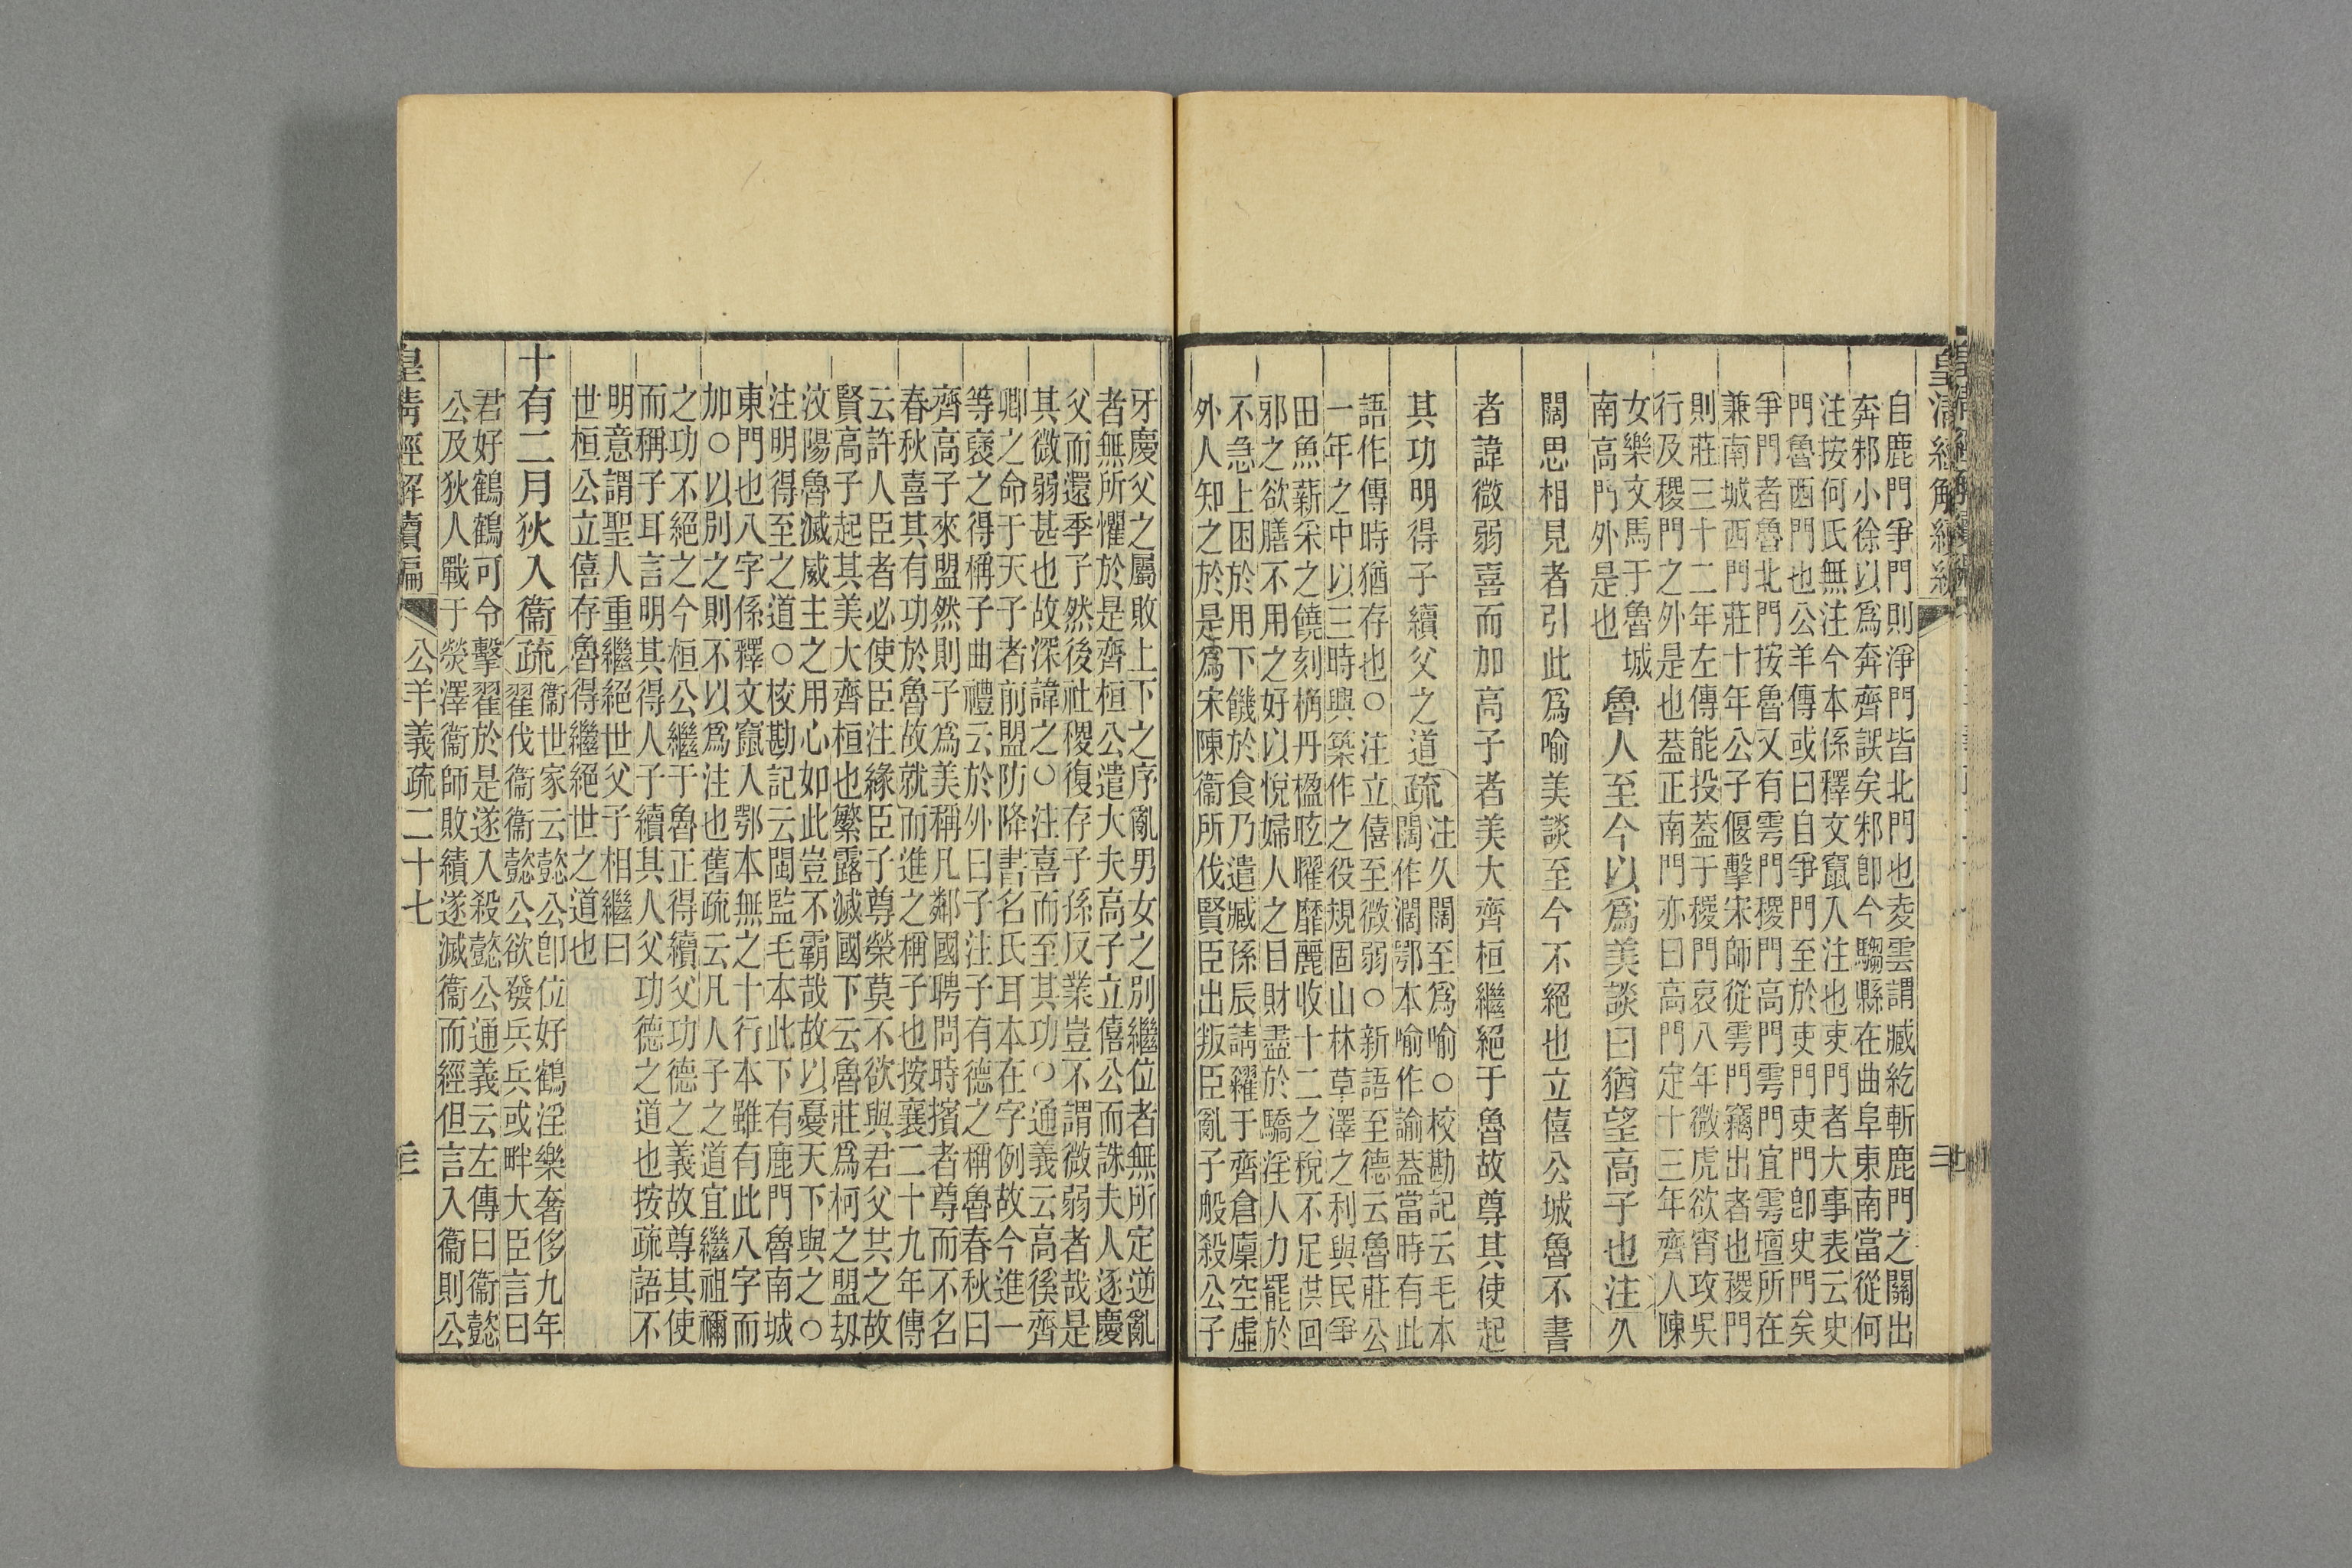 自鹿門爭門則淨門皆北門也夌雲謂臧紇斬鹿門之關出
奔邾小徐以爲奔齊誤矣邾卽今騶縣在曲阜東南當從何
注按何氏無注今本係釋文竄入注也吏門者大事表云史
門魯西門也公羊傳或曰自爭門至於吏門吏門卽史門矣
爭門者魯北門按魯又有雩門稷門高門雩門宜雩壇所在
兼南城西門莊十年公子偃擊宋師從雩門竊出者也稷門
則莊三十二年左傳能投蓋于稷門哀八年微虎欲宵攻吳
行及稷門之外是也葢正南門亦曰高門定十三年齊人陳
女樂文馬于魯城
南高門外是也
魯人至今以爲美談曰猶望高子也注久
闊思相見者引此爲喻美談至今不絕也立僖公城魯不書
者諱微弱喜而加高子者美大齊桓繼絕于魯故尊其使起
其功明得子續父之道疏
注久闊至爲喻○校勘記云毛本
闊作濶鄂本喻作諭葢當時有此
語作傳時猶存也○注立僖至微弱○新語至德云魯莊公
一年之中以三時興築作之役規固山林草澤之利與民爭
田魚薪采之饒刻桷丹楹眩曜靡麗收十二之稅不足供回
邪之欲膳不用之好以悅婦人之目財盡於驕淫人力罷於
不急上困於用下饑於食乃遣臧孫辰請糴于齊倉廩空虛
外人知之於是爲宋陳衞所伐賢臣出叛臣亂子般殺公子
牙慶父之屬敗上下之序亂男女之別繼位者無所定逆亂
者無所懼於是齊桓公遣大夫高子立僖公而誅夫人逐慶
父而還季子然後社稷復存子孫反業豈不謂微弱者哉是
其微弱甚也故深諱之○注喜而至其功○通義云高徯齊
卿之命于天子者前盟防降書名氏耳本在字例故今進一
等襃之得稱子曲禮云於外曰子注子有德之稱魯春秋曰
齊高子來盟然則子爲美稱凡鄰國聘問時擯者尊而不名
春秋喜其有功於魯故就而進之稱子也按襄二十九年傳
云許人臣者必使臣注緣臣子尊榮莫不欲與君父共之故
賢高子起其美大齊桓也繁露滅國下云魯莊爲柯之盟刼
汶陽魯滅威主之用心如此豈不霸哉故以憂天下與之○
注明得至之道○校勘記云閩監毛本此下有鹿門魯南城
東門也八字係釋文竄入鄂本無之十行本雖有此八字而
加○以別之則不以爲注也舊疏云凡人子之道宜繼祖禰
之功不絕之今桓公繼于魯正得續父功德之義故尊其使
而稱子耳言明其得人子續其人父功德之道也按疏語不
明意謂聖人重繼絕世父子相繼曰
世桓公立僖存魯得繼絕世之道也
十有二月狄入衞疏
衞世家云懿公卽位好鶴淫樂奢侈九年
翟伐衞衞懿公欲發兵兵或畔大臣言曰
君好鶴鶴可令擊翟於是遂入殺懿公通義云左傳曰衞懿
公及狄人戰于熒澤衞師敗績遂滅衞而經但言入衞則公
皇清經解續編
公羊義疏二十七